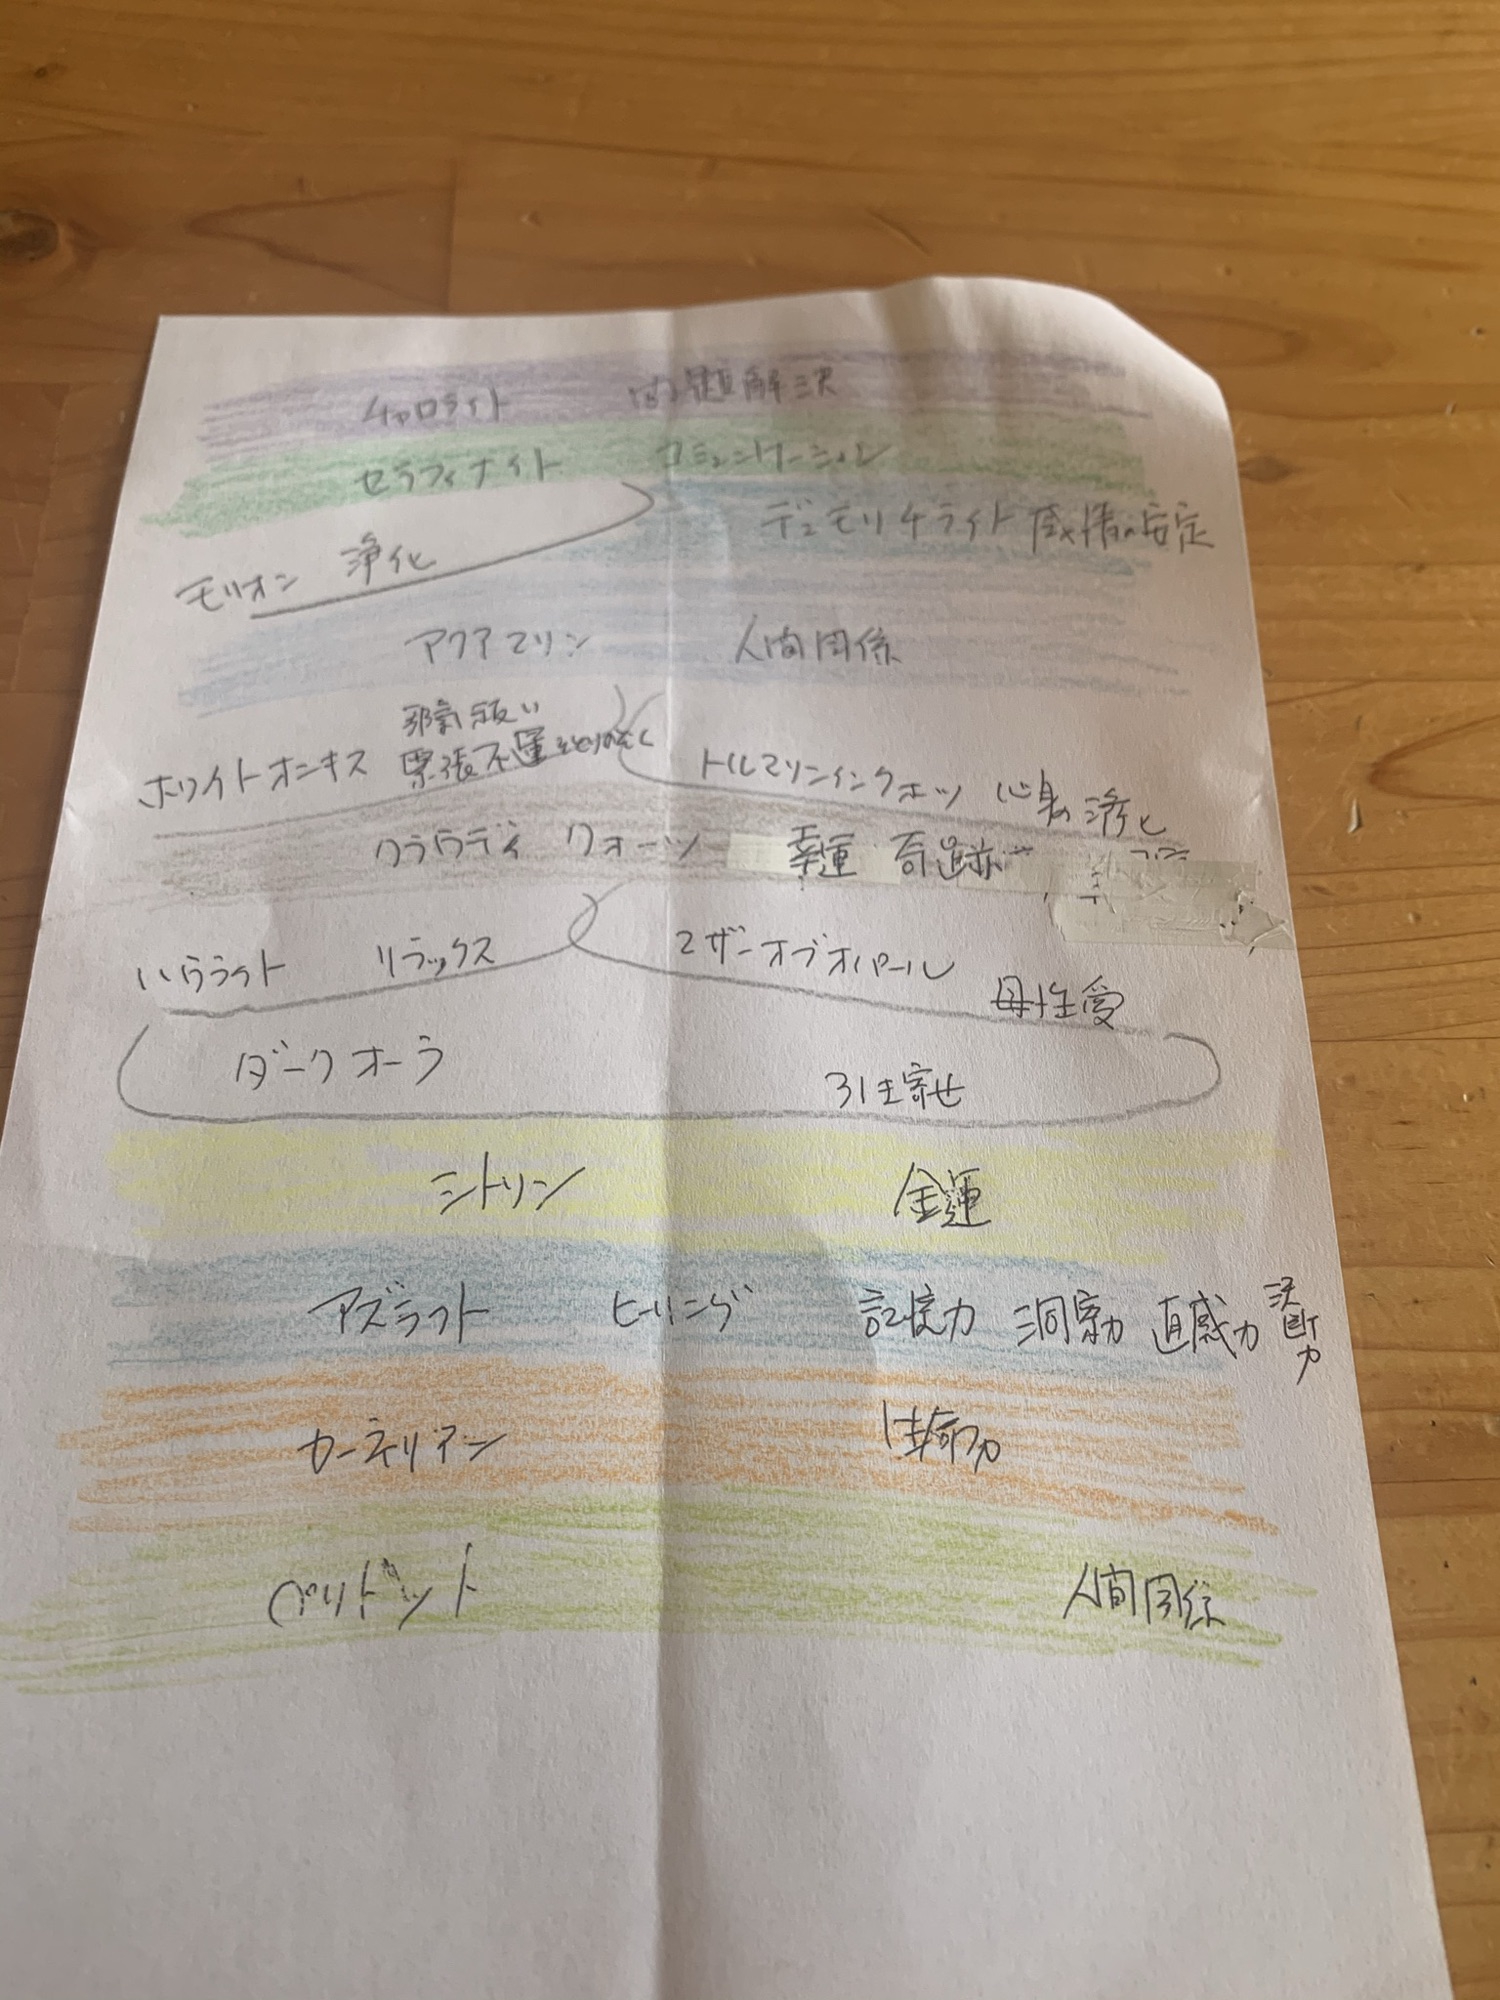 チャロライト 問題解決
セラフィナイト コミュニケーション
デュモリチライト 感情の安定
モリオン 浄化
アクアマリン 人間関係
邪気払い
ホワイトオニキス 緊張不運をとりのぞく
トルマリンインクォーツ 心身の浄化
クラウディ クォーツ 幸運 奇跡
ハウライト リラックス
マザーオブオパール
母性愛
ダークオーラ 引き寄せ
シトリン 金運
アズライト ヒーリング 記憶力 洞察力 直感力 決断力
カーネリアン 生命力
ペリドット 人間関係